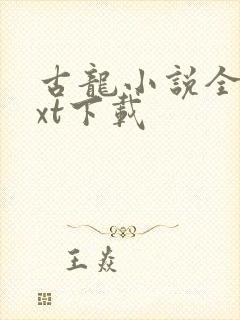 古龍小説全
xt下載
王焱